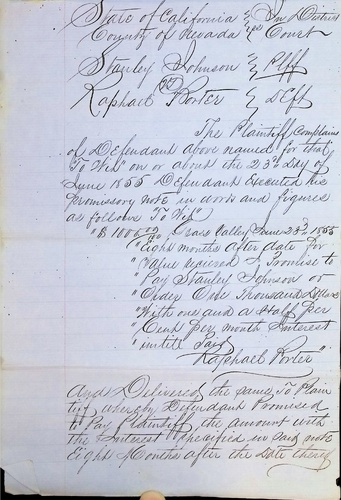 State of California } In District
County of Nevada } Court
Stanley Johnson } Plff
vs
Raphael Porter } Deft
The Plaintiff Complains
of Defendant above named for that
"To Wit" on or about the 23rd Day of
June 1855 Defendant Executed his
Promissory note in words and figures
as follows To Wit"
"$1000.00 Grass Valley June 23rd 1855
"Eight months after date for
"Value received I Promise to
"Pay Stanley Johnson or
"Order One Thousand Dollars
"With one and a half Per
"Cent Per month Interest
"untill Paid
Raphael Porter"
And Delivered the same To Plain
tiff whereby Defendant Promised
to Pay Plaintiff the amount with
the Interest specified in said note
Eight Months after the Date thereof